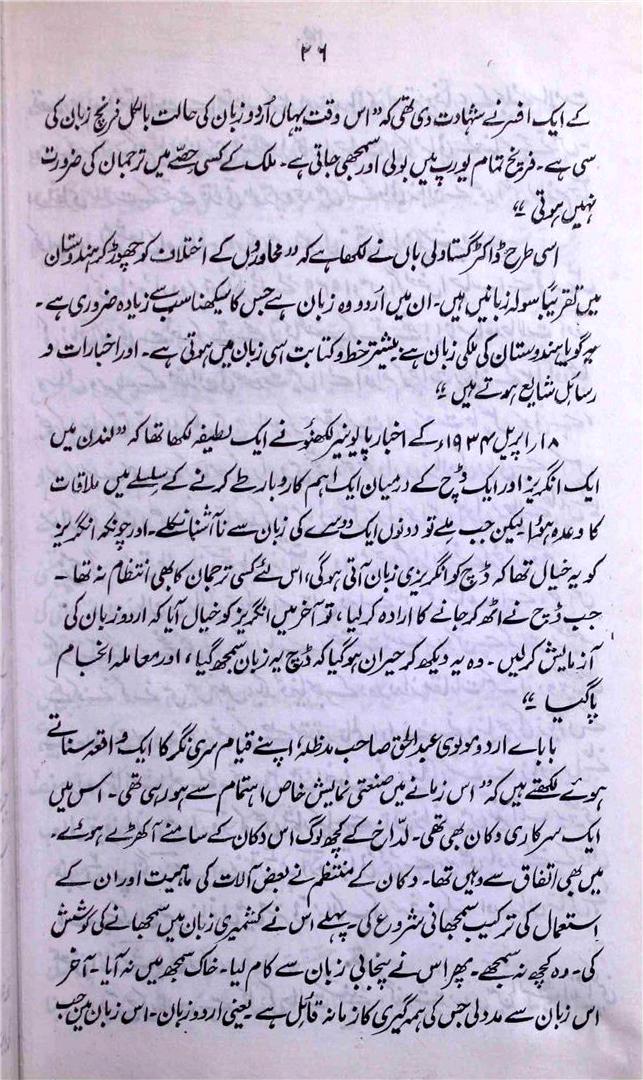 ۲۶
کے ایک افسر نے شہادت دی تھی کہ "اس وقت یہاں اُردو زبان کی حالت بالکل فرنچ زبان کی
سی ہے۔ فرنچ تمام یورپ میں بولی اور سمجھی جاتی ہے۔ ملک کے کسی حصّے میں ترجمان کی ضرورت
نہیں ہوتی"
اسی طرح ڈاکٹر گستاولی باں نے لکھا ہے کہ "محاوروں کے اختلاف کو چھوڑ کر ہندوستان
میں تقریباً سولہ زبانیں ہیں۔ ان میں اُردو وہ زبان ہے جس کا سیکھنا سب سے زیادہ ضروری ہے۔
یہ گویا ہندوستان کی ملکی زبان ہے؛ بیشتر خط و کتابت اسی زبان میں ہوتی ہے۔ اور اخبارات و
رسائل شایع ہوتے ہیں"
۱۸ اپریل ۱۹۳۴ء کے اخبار پایونیر لکھنؤ نے ایک لطیفہ لکھا تھا کہ "لندن میں
ایک انگریز اور ایک ڈچ کے درمیان ایک اہم کاروبار طے کرنے کے سلسلے میں ملاقات
کا وعدہ ہوا لیکن جب ملے تو دونوں ایک دوسرے کی زبان سے ناآشنا نکلے۔ اور چونکہ انگریز
کو یہ خیال تھا کہ ڈچ کو انگریزی زبان آتی ہوگی، اس لئے کسی ترجمان کا بھی انتظام نہ تھا۔
جب ڈچ نے اٹھ کر جانے کا ارادہ کر لیا، تو آخر میں انگریز کو خیال آیا کہ اردو زبان کی
آزمایش کر لیں۔ وہ یہ دیکھ کر حیران ہوگیا کہ ڈچ یہ زبان سمجھ گیا، اور معاملہ انجام
پا گیا"
بابائے اردو مولوی عبدالحق صاحب مدظلہ، اپنے قیام سری نگر کا ایک واقعہ سناتے
ہوئے لکھتے ہیں کہ "اس زمانے میں صنعتی نمایش خاص اہتمام سے ہو رہی تھی۔ اس میں
ایک سرکاری دکان بھی تھی۔ لدّاخ کے کچھ لوگ اس دکان کے سامنے آ کھڑے ہوئے۔
میں بھی اتفاق سے وہیں تھا۔ دکان کے منتظم نے بعض آلات کی ماہیت اور ان کے
استعمال کی ترکیب سمجھانی شروع کی۔ پہلے اس نے کشمیری زبان میں سمجھانے کی کوشش
کی۔ وہ کچھ نہ سمجھے۔ پھر اس نے پنجابی زبان سے کام لیا۔ خاک سمجھ میں نہ آیا۔ آخر
اس زبان سے مدد لی جس کی ہمہ گیری کا زمانہ قائل ہے یعنی اردو زبان۔ اس زبان میں جب